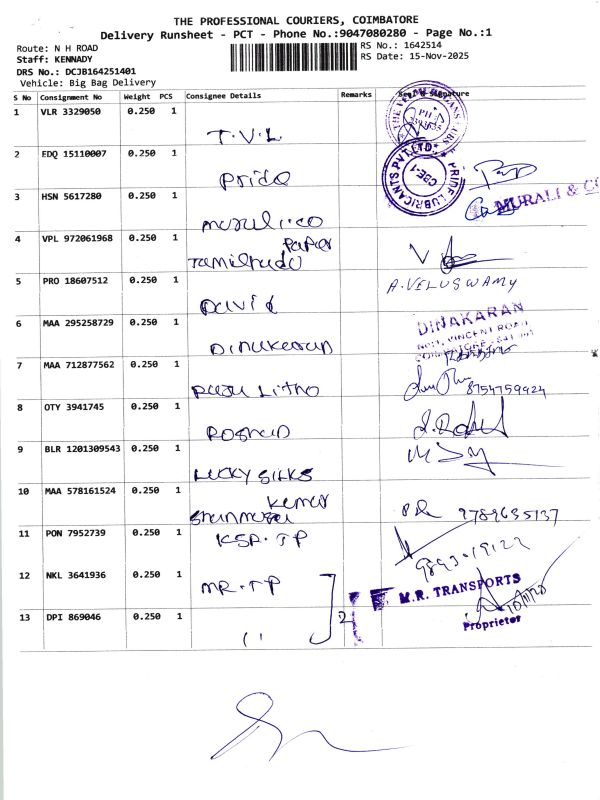 THE PROFESSIONAL COURIERS, COIMBATORE
Delivery Runsheet - PCT - Phone No.:9047080280 - Page No.:1
Route: N H ROAD
RS No.: 1642514
Staff: KENNADY
RS Date: 15-Nov-2025
DRS No.: DCJB164251401
Vehicle: Big Bag Delivery
S No Consignment No Weight PCS Consignee Details Remarks Seal & Signature
1 VLR 3329050 0.250 1
T.V.L
2 EDQ 15110007 0.250 1
Pride
PRIME LUBRICANTS PVT.LTD. CBE-1
3 HSN 5617280 0.250 1
MURALI & CO
4 VPL 972061968 0.250 1
Paper
Tamilnadu
5 PRO 18607512 0.250 1
A.VELUSWAMY
David
6 MAA 295258729 0.250 1
DINAKARAN
VINCENT ROAD
Dinakaran
7 MAA 712877562 0.250 1
8754759924
Litho
8 OTY 3941745 0.250 1
Roshan
9 BLR 1201309543 0.250 1
Lucky Silks
10 MAA 578161524 0.250 1
Kumar
9789635137
11 PON 7952739 0.250 1
KSP.TP
12 NKL 3641936 0.250 1
MR.TP
M.R. TRANSPORTS
13 DPI 869046 0.250 1
2
Proprietor